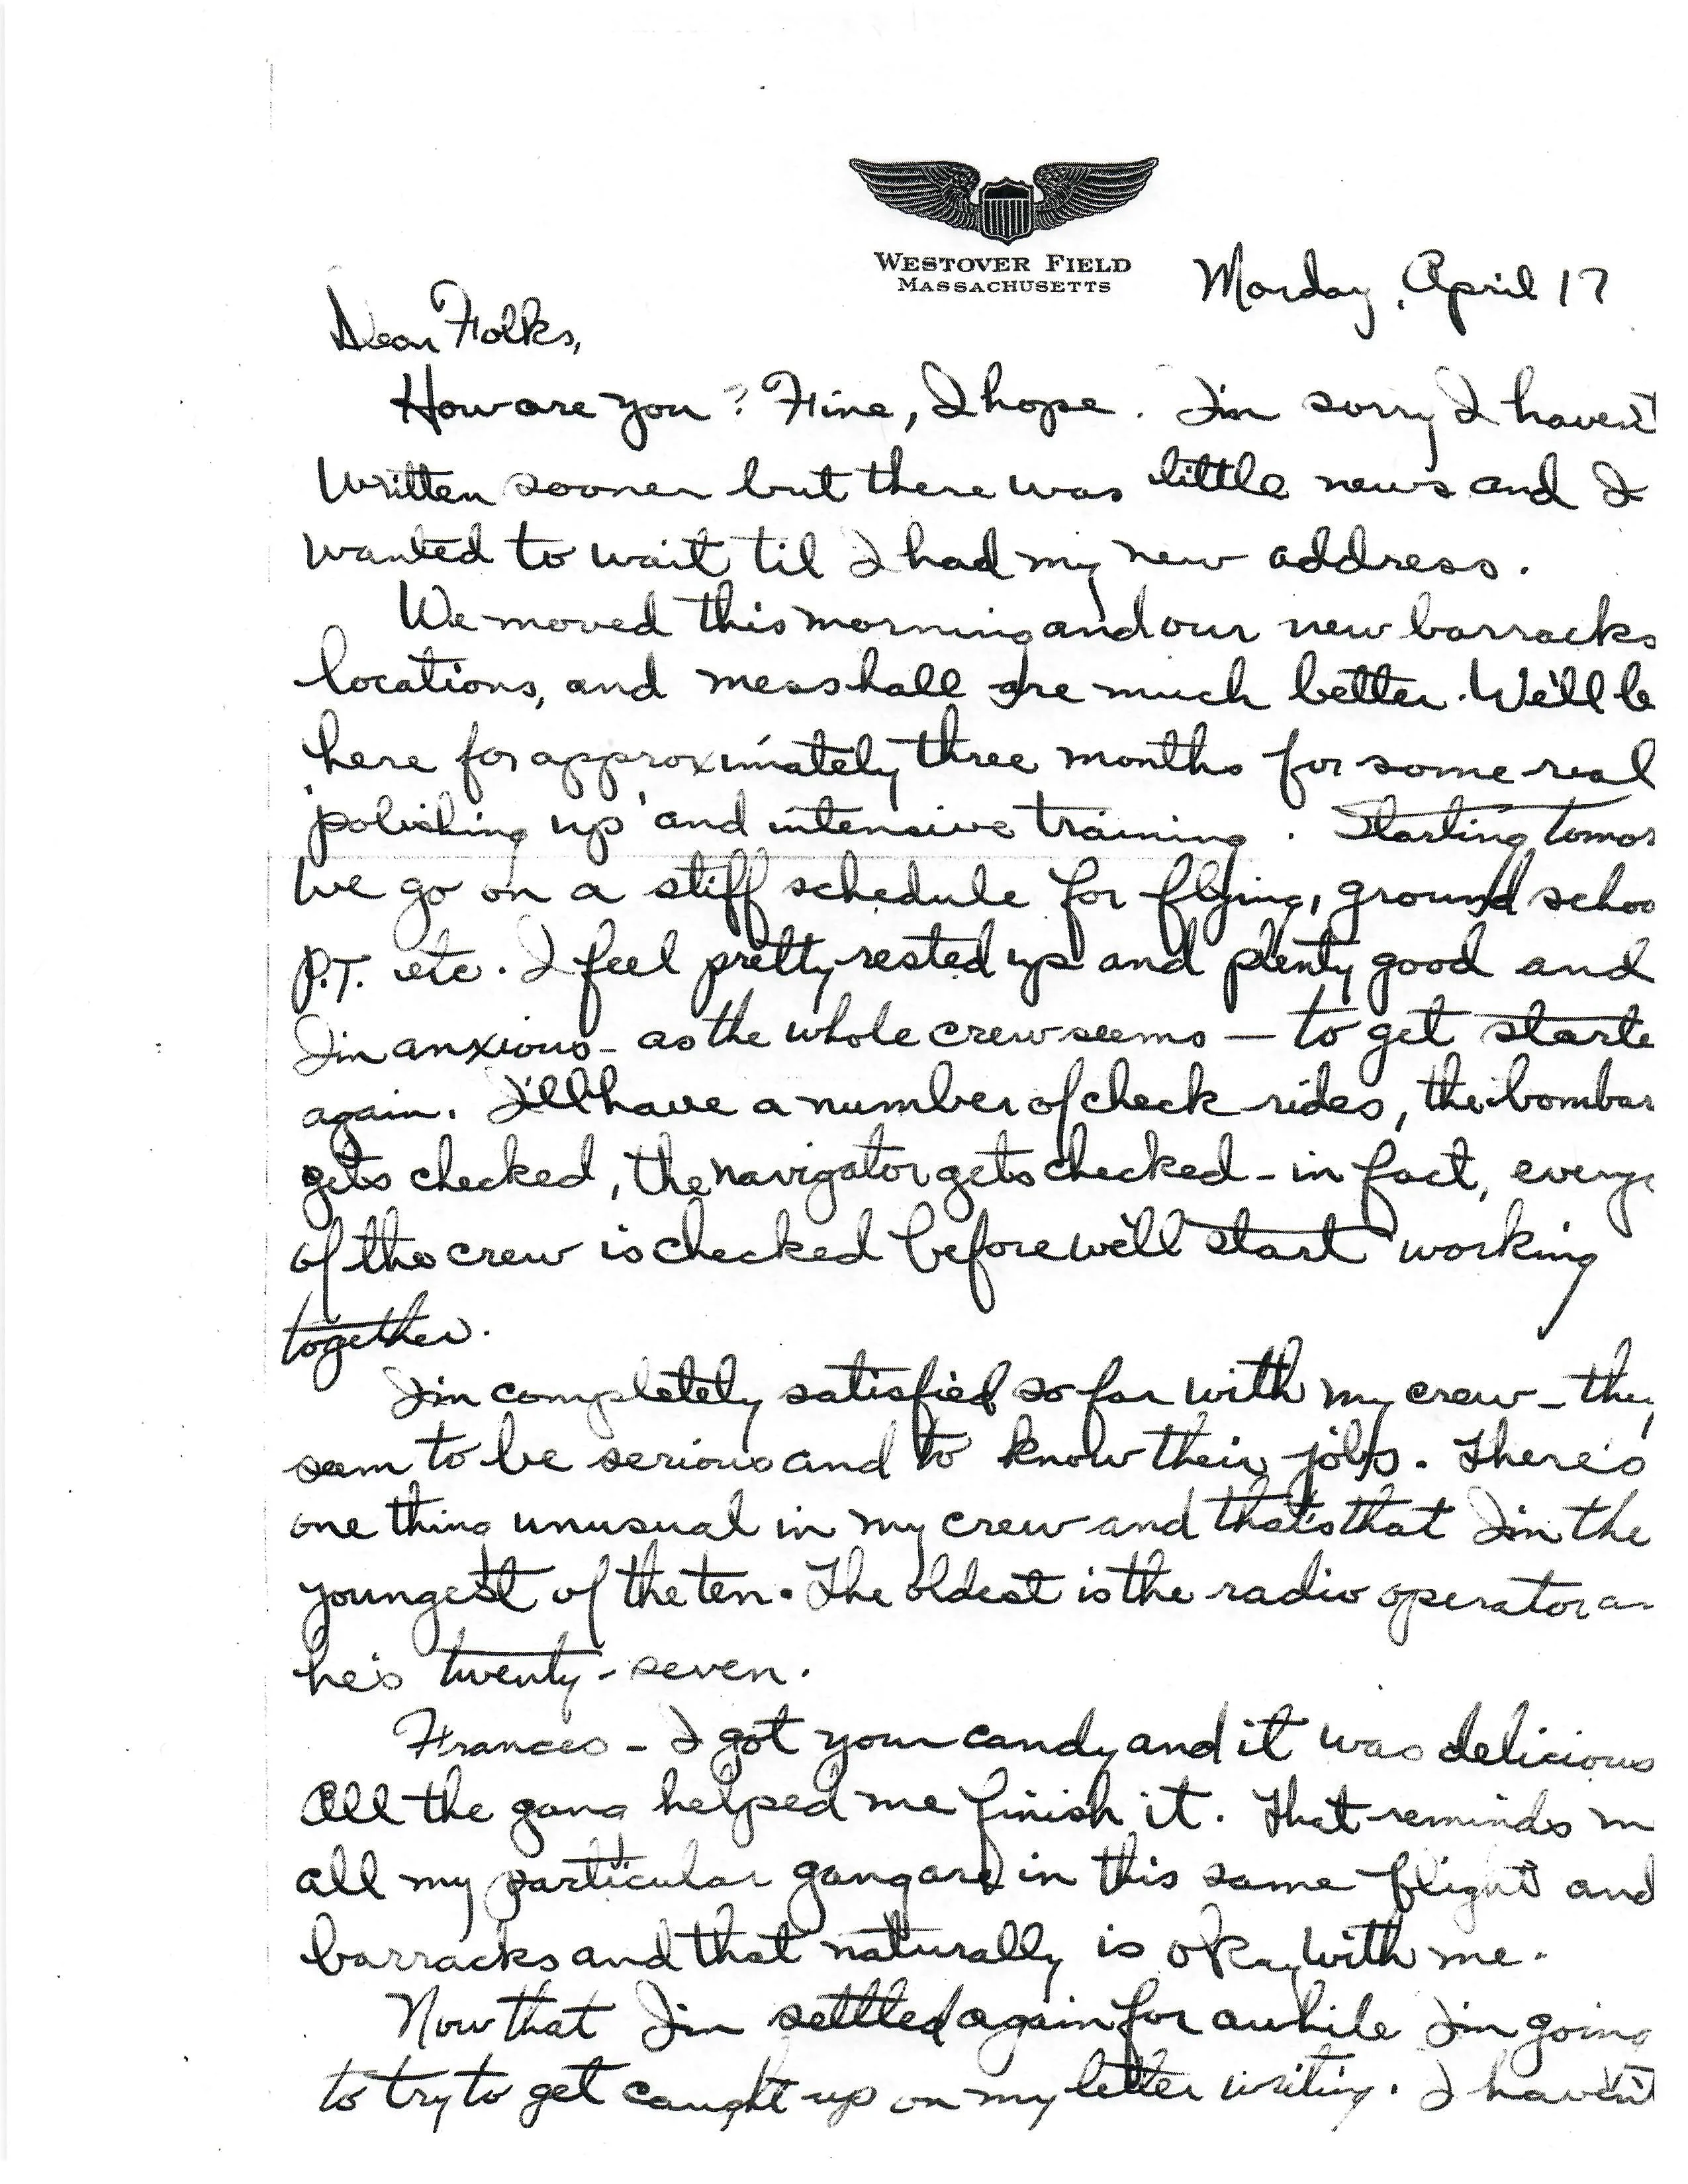 WESTOVER FIELD
MASSACHUSETTS
Monday, April 17
Dear Folks,
How are you? Fine, I hope. I'm sorry I haven't
written sooner but there was little news and I
wanted to wait til I had my new address.
We moved this morning and our new barracks
locations, and mess hall are much better. We'll be
here for approximately three months for some real
'polishing up' and intensive training. Starting tomor
we go on a stiff schedule for flying, ground schoo
P.T. etc. I feel pretty rested up and plenty good and
I'm anxious - as the whole crew seems — to get starte
again. I'll have a number of check rides, the bombar
gets checked, the navigator gets checked - in fact, every
of the crew is checked before we'll start working
together.
I'm completely satisfied so far with my crew - they
seem to be serious and to know their jobs. There's
one thing unusual in my crew and that's that I'm the
youngest of the ten. The oldest is the radio operator an
he's twenty-seven.
Frances - I got your candy and it was delicious
All the gang helped me finish it. That reminds m
all my particular gang are in this same flight and
barracks and that naturally is okay with me.
Now that I'm settled again for awhile I'm going
to try to get caught up on my letter writing. I haven't